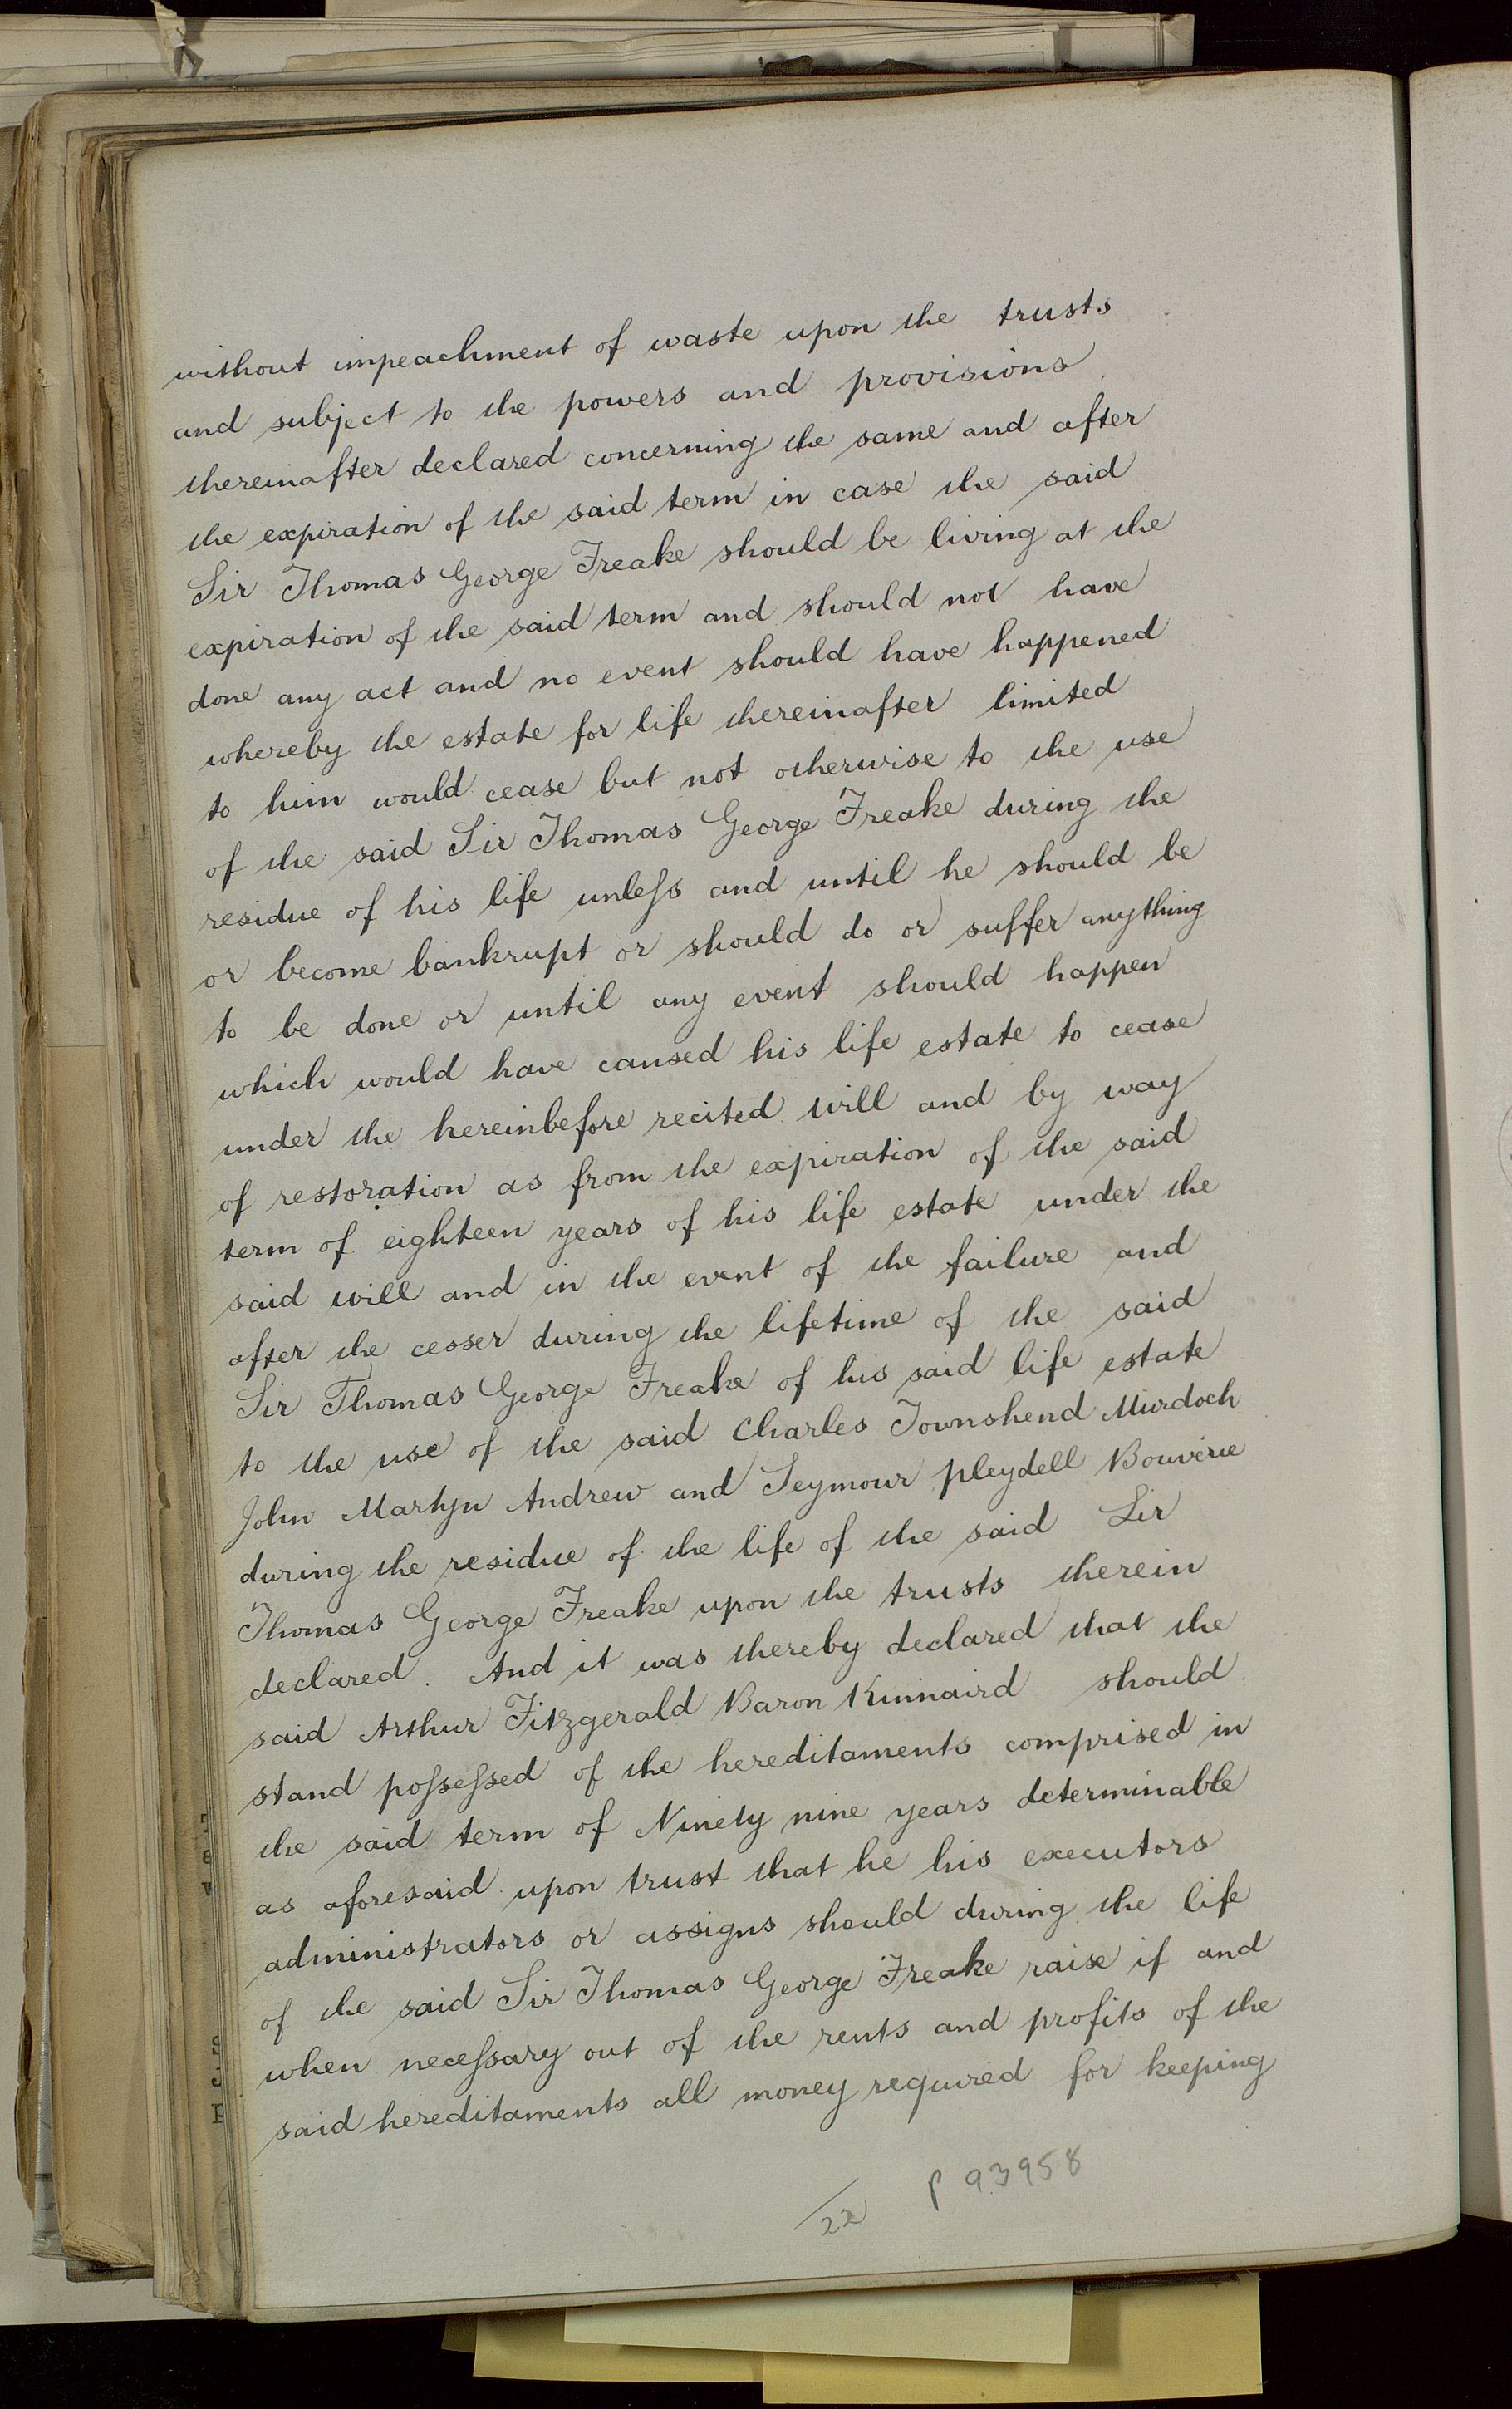 without impeachment of waste upon the trusts
and subject to the powers and provisions
thereinafter declared concerning the same and after
the expiration of the said term in case the said
Sir Thomas George Freake should be living at the
expiration of the said term and should not have
done any act and no event should have happened
whereby the estate for life thereinafter limited
to him would cease but not otherwise to the use
of the said Sir Thomas George Freake during the
residue of his life unleſs and until he should be
or become bankrupt or should do or suffer anything
to be done or until any event should happen
which would have caused his life estate to cease
under the hereinbefore recited will and by way
of restoration as from the expiration of the said
term of eighteen years of his life estate under the
said will and in the event of the failure and
after the cesser during the lifetime of the said
Sir Thomas George Freake of his said life estate
to the use of the said Charles Townshend Murdoch
John Martyn Andrew and Seymour Pleydell Bouverie
during the residue of the life of the said Sir
Thomas George Freake upon the trusts therein
declared. And it was thereby declared that the
said Arthur Fitzgerald Baron Kinnaird should
stand poſseſsed of the hereditaments comprised in
the said term of Ninety nine years determinable
as aforesaid upon trust that he his executors
administrators or assigns should during the life
of the said Sir Thomas George Freake raise if and
when neceſsary out of the rents and profits of the
said hereditaments all money required for keeping
22 P 93958